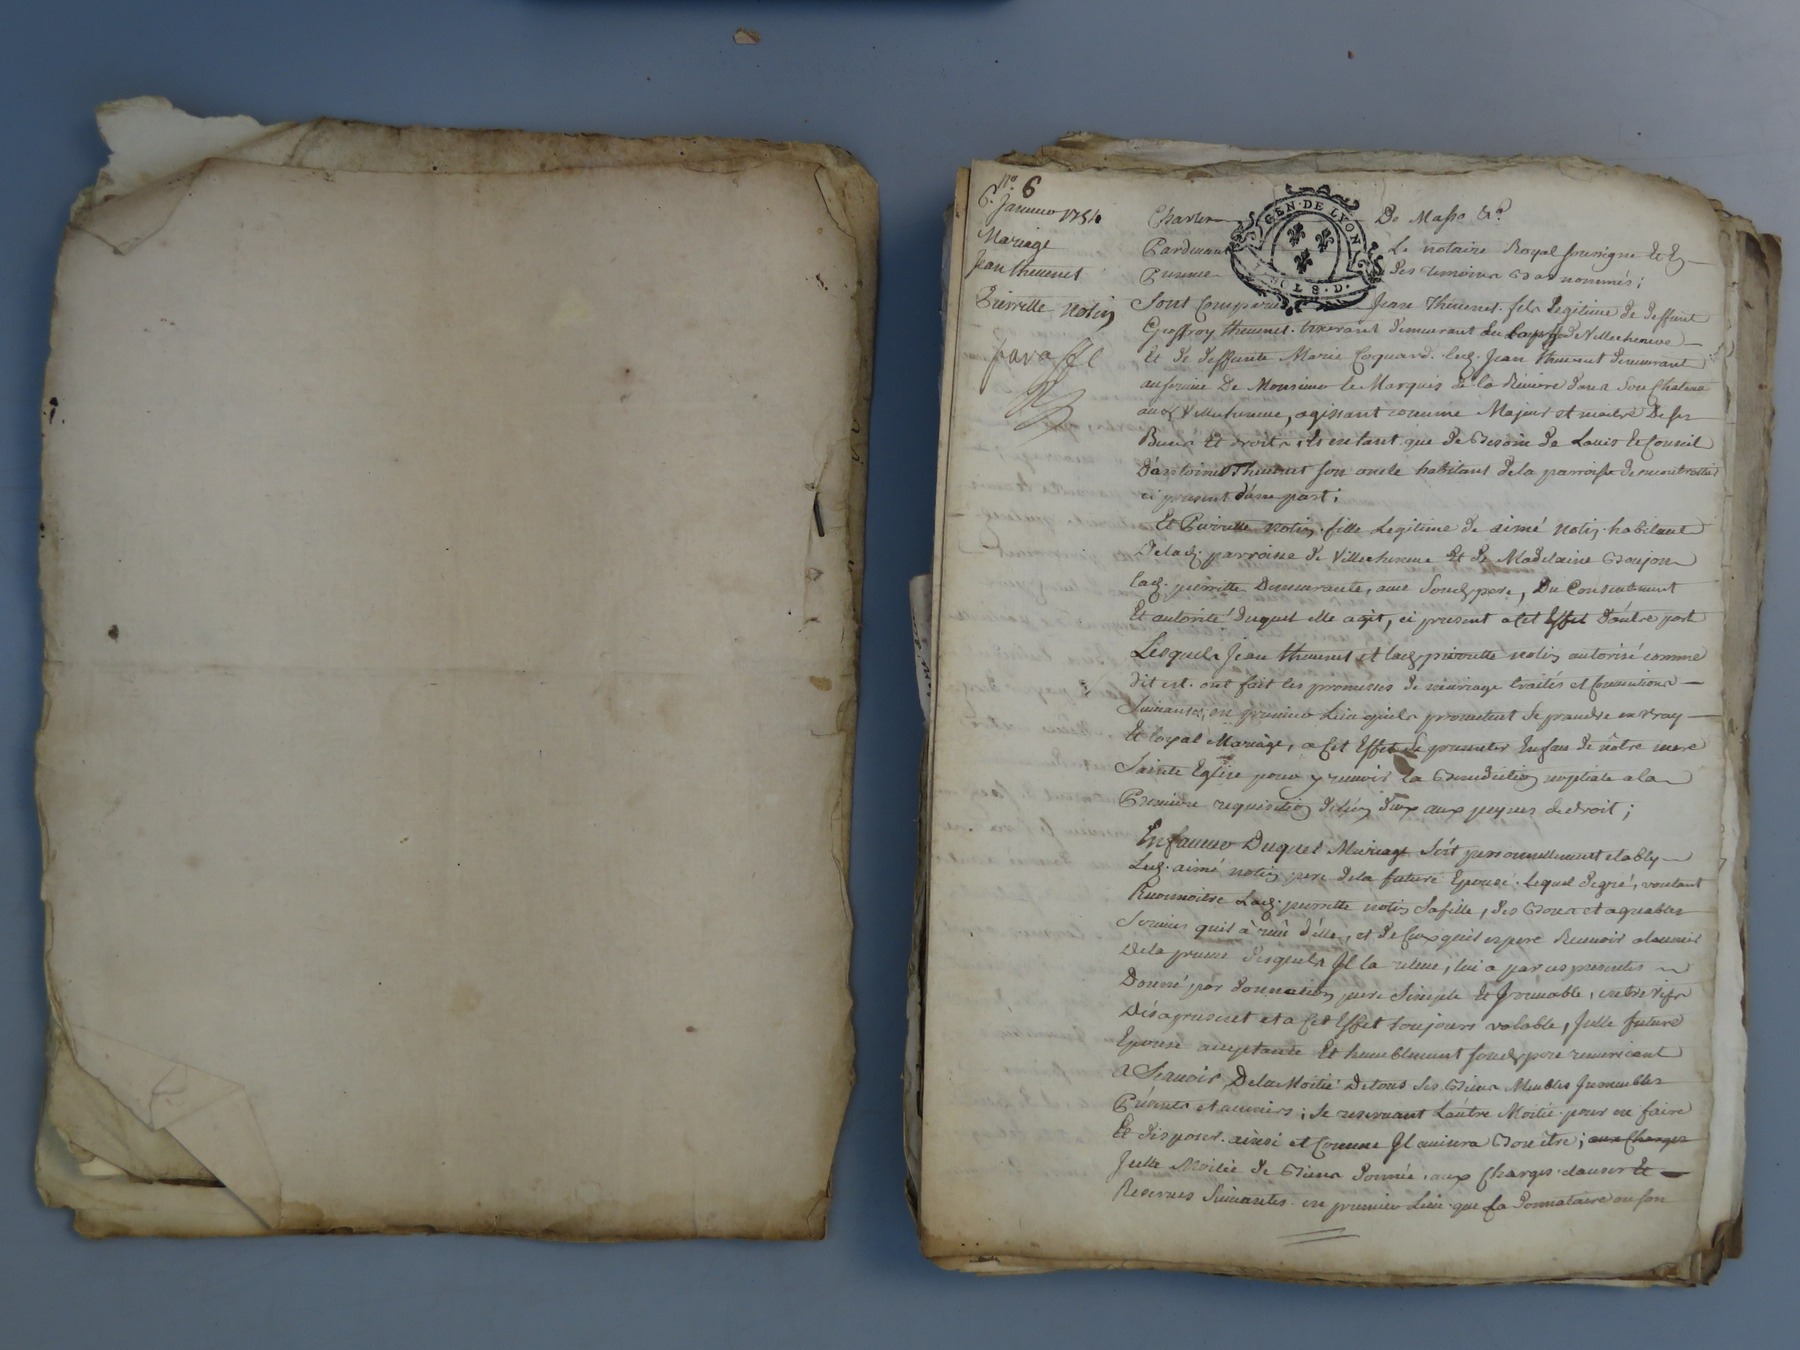 n.o 6
6. Janvier 1754
Mariage
Jean thevenet
Pierrette Notin
paraffé
GEN. DE LYON
SOLS. D.
De Masso &a
Le notaire Royal soussigné et En
Pardevant
Presence des temoins Bas nommés;
Sont Comparus Jean Thevenet fils Legitime de deffunt
Geoffroy thevenet demeurant de Villecheneve
Et de deffunte Marie Coquard. led. Jean thevenet demeurant
au service De Monsieur le Marquis de la Riviere dans son Chateau
aud. Villecheneve, agissant comme Majeur et maitre De ses
Biens Et droits, et en tant que de Besoin de L'avis et Conseil
d'antoine Thevenet son oncle habitant de la parroisse de montrottier
ci present d'une part;
Et Pierrette Notin fille Legitime de aimé Notin habitant
de lad. parroisse de Villecheneve Et de Madelaine Goujon
lad. pierrette Demeurante, avec Sond. pere, Du Consentement
Et autorité duquel elle agit, ci present a cet Effet d'autre part
Lesquels Jean thevenet et lad. pierrette notin autorisé comme
dit est. ont fait les promesses de mariage traités et Conventions
Suivantes, en premier Lieu quils promettent se prandre en vray
Et loyal Mariage, a cet Effet se presenter En face de nôtre mere
Sainte Eglise pour y recevoir la Benediction nuptiale a la
Premiere requisition de l'un d'eux aux peynes de droit;
En faveur Duquel Mariage s'est personnellement etably
Led. aimé notin pere de la future Epouse. Lequel de gré, voulant
Reconnoitre Lad. pierrette notin Sa fille, des Bons et agreables
Services quil à reçu d'elle, et de Ceux quil espere Recevoir a l'avenir
De la preuve desquels Il la releve, lui a par ces presentes
Donné par donnation pure Simple Et Irrevocable, entre vifs
Des a present et a cet Effet toujours valable, Jcelle future
Epouse acceptante Et humblement sond. pere remerciant
a Scavoir De la Moitié De tous ses Biens Meubles Immeubles
Presents et avenirs; se reservant L'autre Moitié pour en faire
Et disposer ainsi et Comme Il avisera Bon être; aux Charges
Jcelle Moitié de Biens donnée aux Charges clauses et
Reserves Suivantes. en premier Lieu que La Donnataire ou son